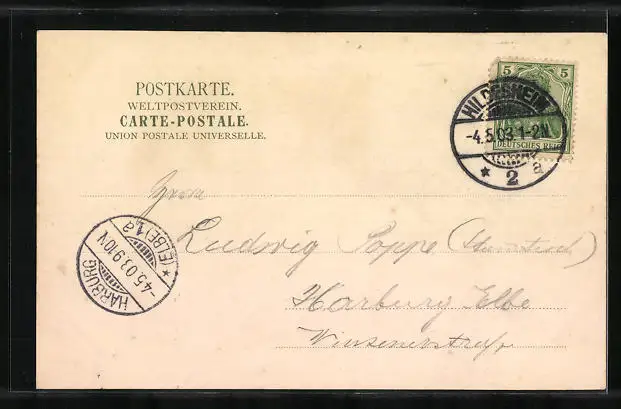 POSTKARTE.
WELTPOSTVEREIN.
CARTE-POSTALE.
UNION POSTALE UNIVERSELLE.
5 5
DEUTSCHES REICH
HILDESHEIM
-4.5.03.1-2N.
* 2 a
Herrn
Ludwig Poppe
Harburg Elbe
Winsenerstraße
HARBURG
-4.5.03.9-10V
* (ELBE) 1 a